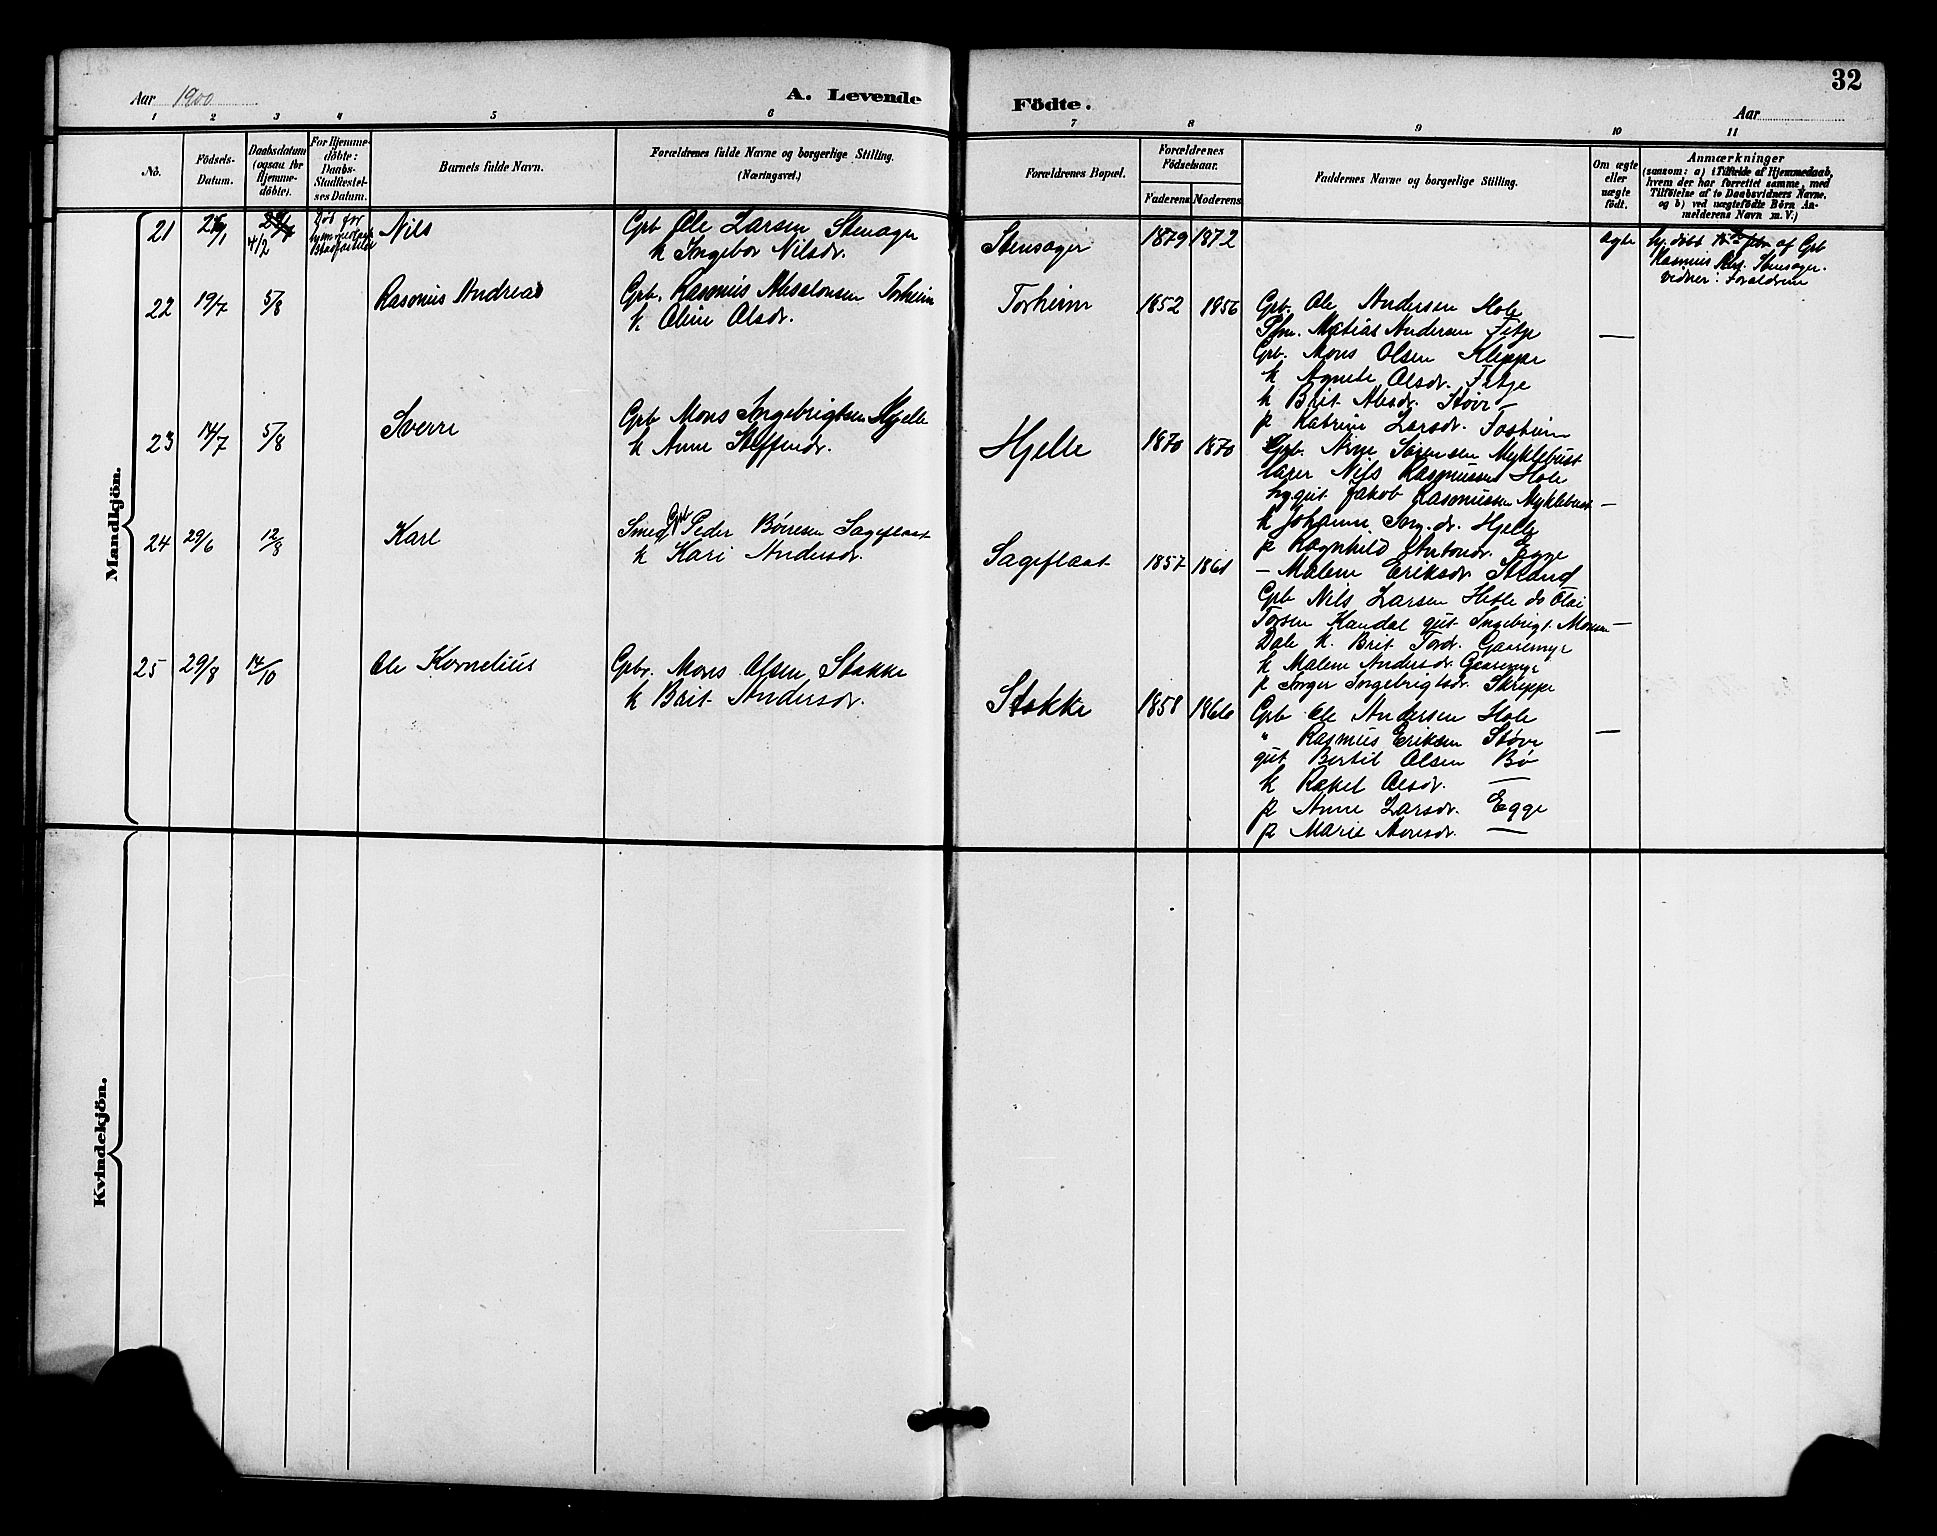 32
Aar 1900
A. Levende
Födte.
Aar
1 2 3 4 5 6 7 8 9 10 11
No.
Födsels-
Datum.
Daabsdatum
(ogsaa for
Hjemme-
döbte).
For Hjemme-
döbte:
Daabs-
Stadfæstel-
ses Datum.
Barnets fulde Navn.
Forældrenes fulde Navne og borgerlige Stilling.
(Næringsvei.)
Forældrenes Bopæl.
Forældrenes
Födselsaar.
Faderens
Moderens
Faddernes Navne og borgerlige Stilling.
Om ægte
eller
uægte
födt.
Anmærkninger
(saasom: a) i Tilfælde af Hjemmedaab,
hvem der har forrettet samme, med
Tilföielse af to Daabsvidners Navne,
og b) ved uægtefödte Börn An-
melderens Navn m. V.)
Mandkjön.
21
4/2
Død før
Nils
Gpb Ole Larsen Stensager
k Ingebor Nilsdr.
Stensager
1879 1872
ægte
hj. døbt af Gpb
Rasmus Stensager.
Vidner: Forældrene
22 19/7 5/8
Rasmus Andreas
Gpb. Rasmus Absalonsen Torheim
k. Oline Olsdr.
Torheim
1852 1856
Gpb. Ole Andersen Hole
Matias Andersen Fitje
Gpb. Mons Olsen Kleppe
k Agnete Olsdr. Fitje
k Brit Absdr. Støve
p Katrine Larsdr. Torheim
—
23 14/7 5/8
Sverre
Gpb Mons Ingebrigtsen Hjelle
k Anne Steffendr.
Hjelle
1870 1870
Gpb. Arne Sørensen Myklebust
lærer Nils Rasmussen Hole
Jakob Rasmussen Myklebust
k Johanne dr. Hjelle
p Ragnhild Antondr. Egge
— Malene Eriksdr Strand
—
24 29/6 12/8
Karl
Smed Gpb Peder Børresen Sageflaat
k Kari Andersdr.
Sageflaat
1857 1861
Gpb Nils Larsen Hesle do Olai
Torsen Kandal gut Ingebrigt Monsen
Dale k. Brit Tord. Gaaremyr
k Malene Andersdr. Gaaremyr
p Inger Ingebrigtsdr. Skreppe
—
25 29/8 14/10
Ole Kornelius
Gpbr. Mons Olsen Stokke
k Brit Andersdr.
Stokke
1858 1866
Gpb Ole Andersen Hole
" Rasmus Eriksen Støve
gut Bertil Olsen Bø
k Rakel Olsdr. —
p Anne Larsdr. Egge
p Marie Monsdr. —
—
Kvindekjön.